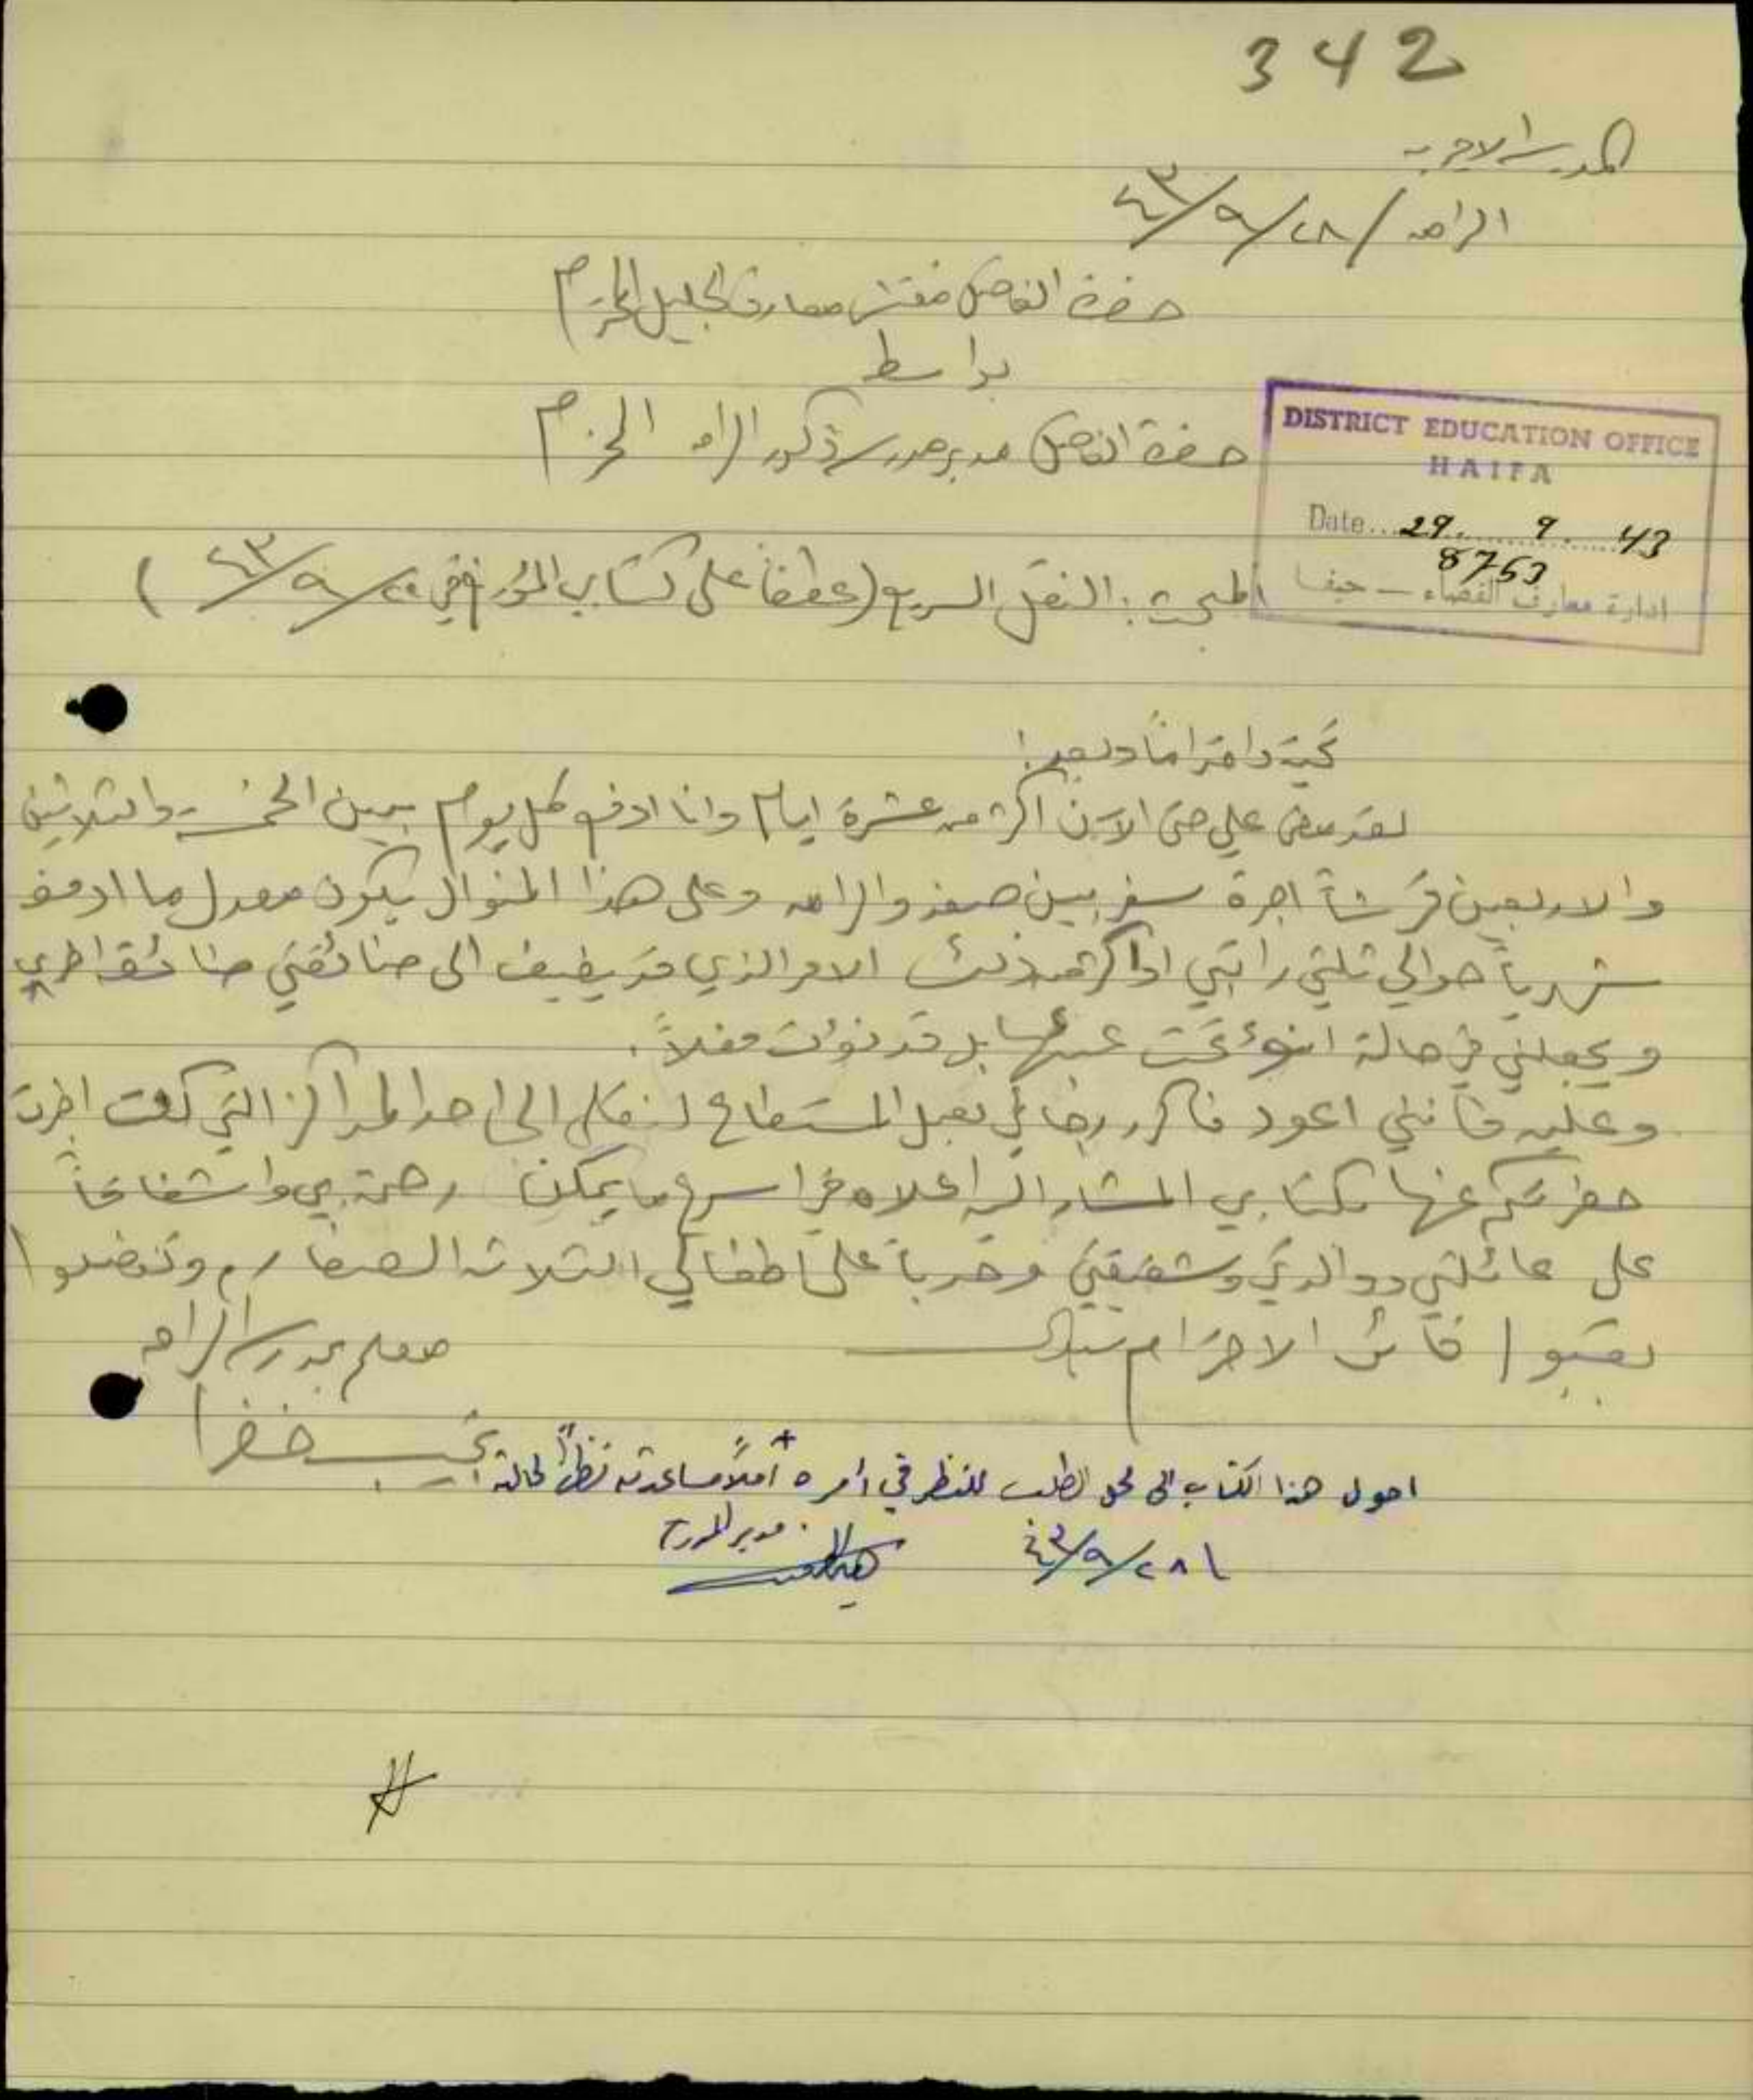 342
المدرسة الاميرية
الرامه / ٢٨/٩/٤٣
حضرة الفاضل مفتش معارف الجليل المحترم
بواسطة
حضرة الفاضل مدير مدرسة ذكور الرامه المحترم
DISTRICT EDUCATION OFFICE
HAIFA
Date... 29. 9. 43
8763
ادارة معارف القضاء – حيفا
المبحث : النقل السريع (عطفاً على كتابي المؤرخ في ٢٠/٩/٤٣)
تحية واحتراماً وبعد :
لقد مضى علي حتى الآن اكثر من عشرة ايام وانا ادفع كل يوم بين الخمسة والثلاثين
والاربعين قرشاً اجرة سفر بين صفد والرامه وعلى هذا المنوال يكون معدل ما ادفعه
شهرياً حوالي ثلثي راتبي او اكثر من ذلك الامر الذي قد يضيف الى ضائقتي ضائقة اخرى
ويجعلني في حالة انوء تحت عبئها بل قد نؤت فعلاً .
وعليه فانني اعود فاكرر رجائي بعمل المستطاع لنقلي الى احد المراكز التي كنت اخبرت
حضرتكم عنها بكتابي المشار اليه اعلاه في اسرع ما يمكن رحمة بي واشفاقاً
على عائلتي ووالدتي وشقيقتي وحدباً على اطفالي الثلاثة الصغار ، وتفضلوا
بقبول فائق الاحترام سيدي
معلم بمدرسة الرامه
نجيب خضرا
احول هذا الكتاب الى نحو الطلب للنظر في امره آملاً مساعدته نظراً لحالته
٢٨/٩/٤٣
مدير المدرسة